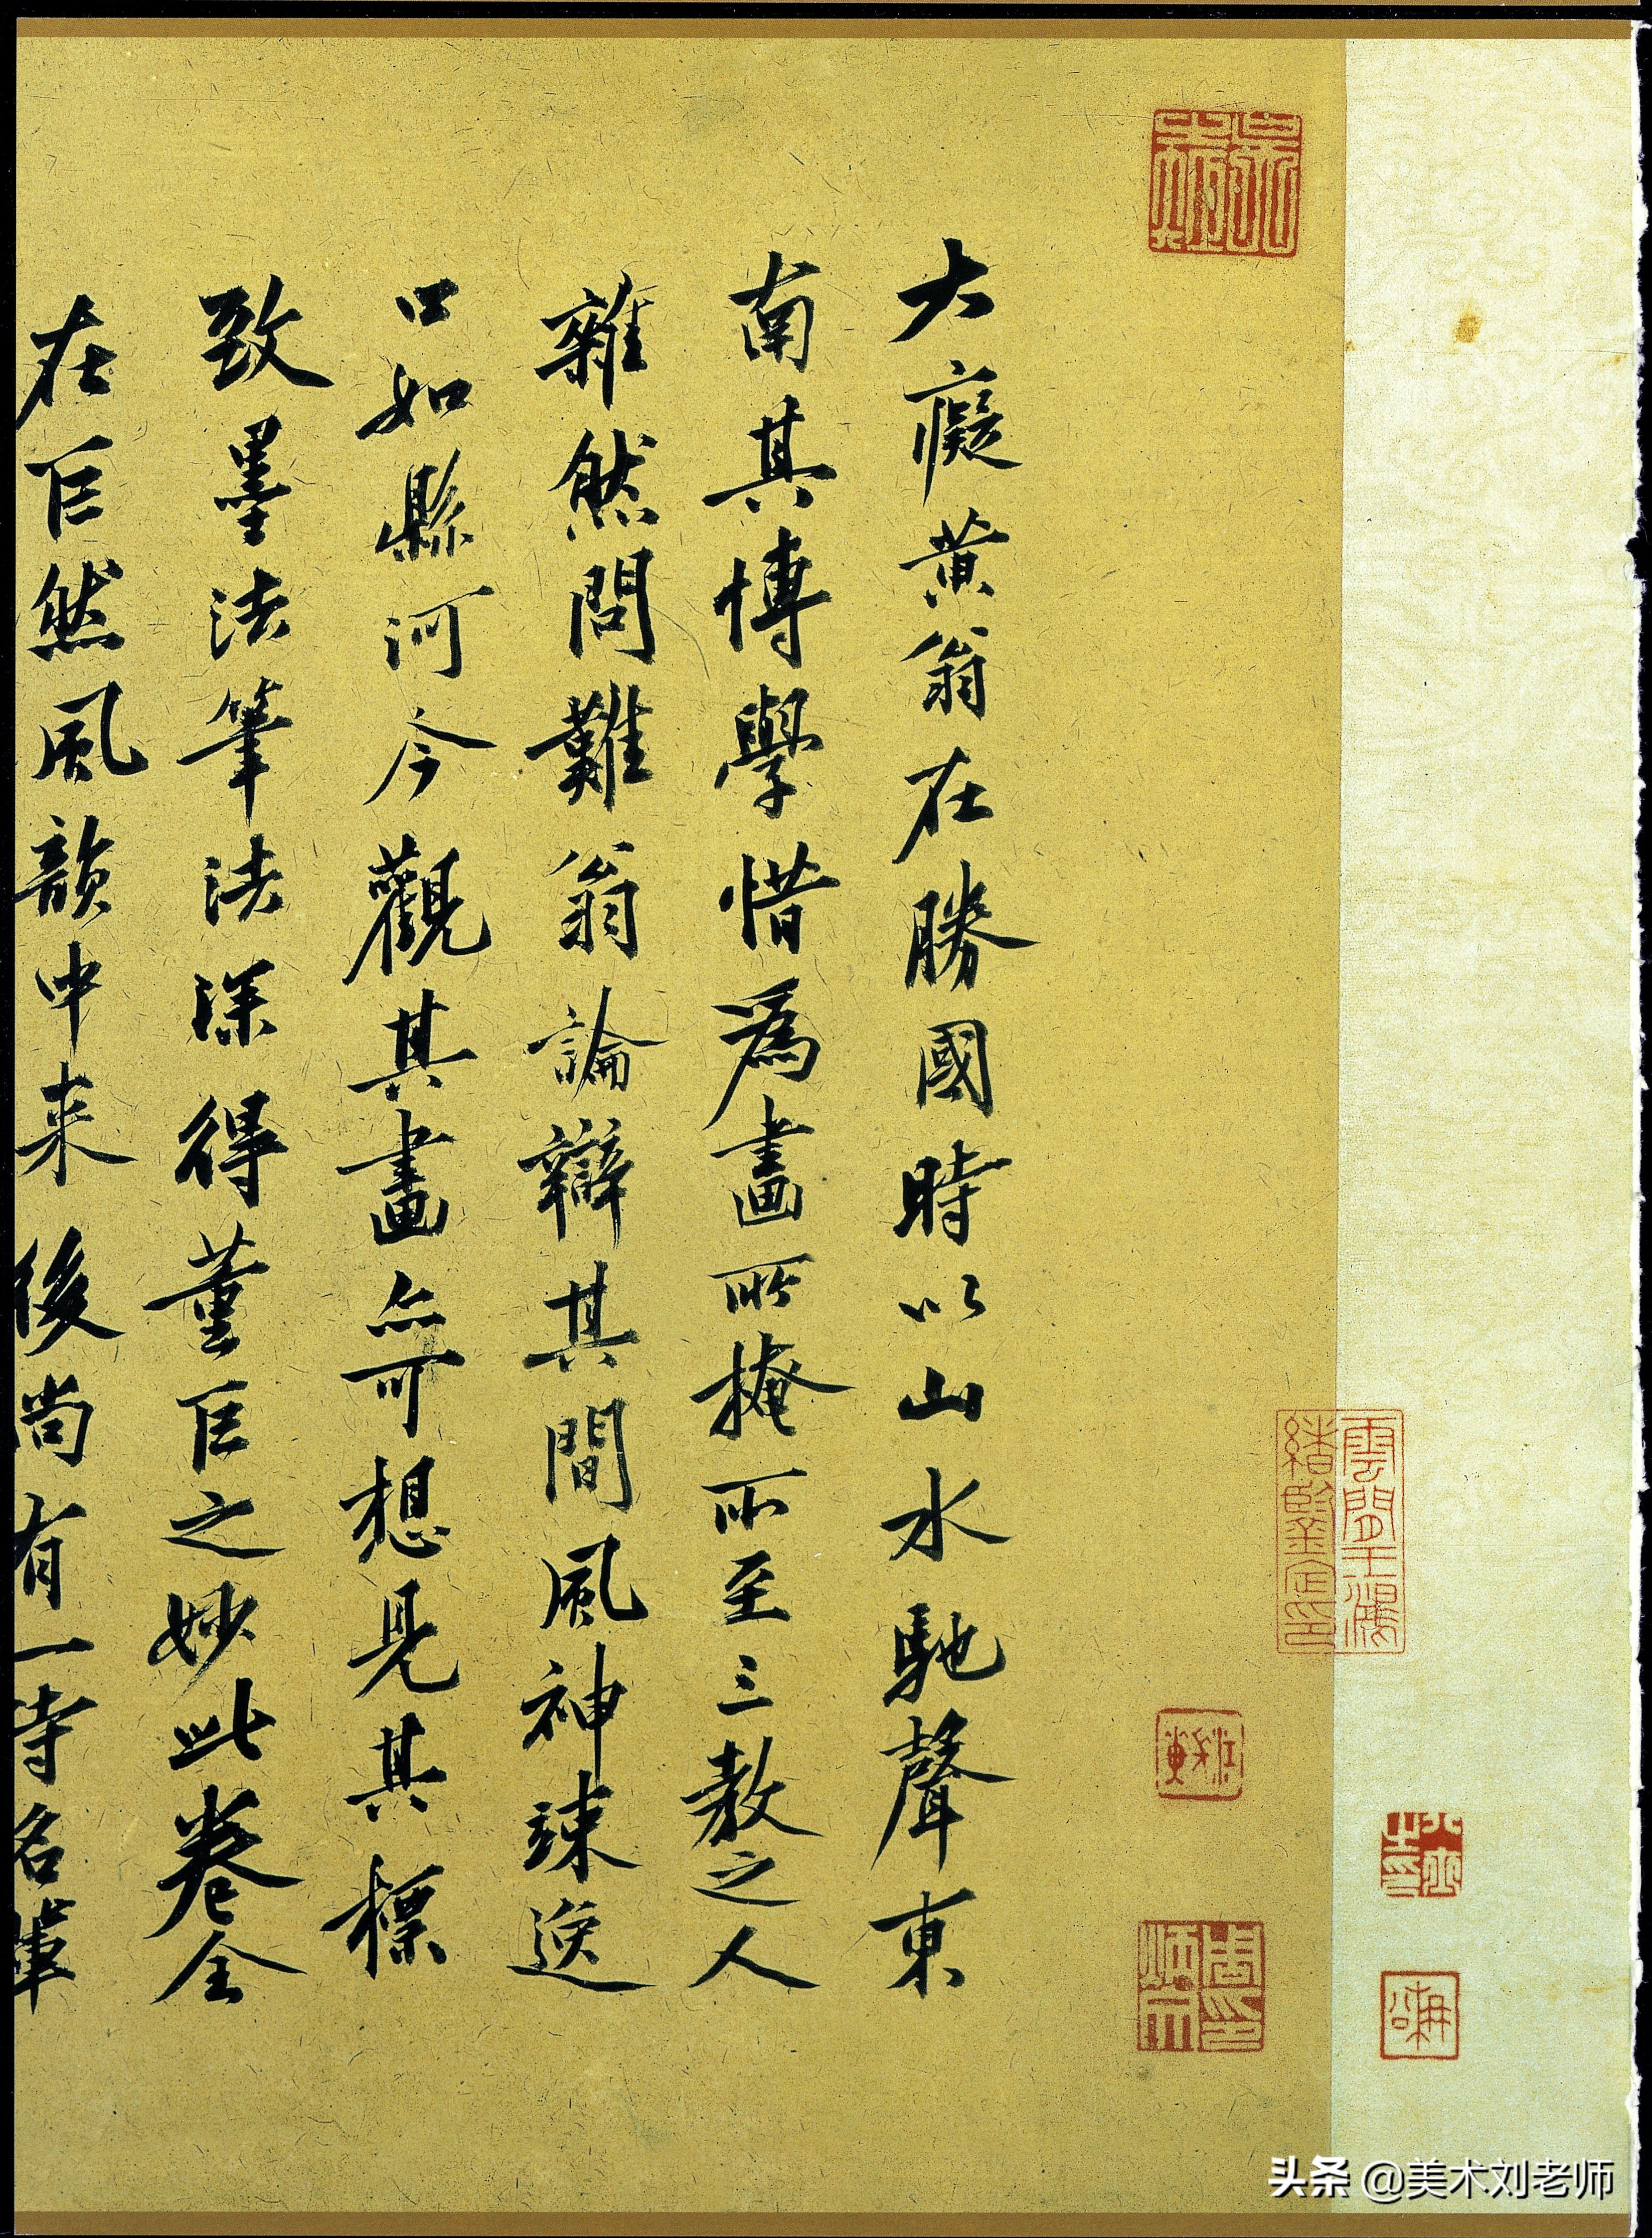 大癡黄翁在勝國時以山水馳聲東
南其博學惜為畫所掩所至三教之人
雜然問難翁論辯其間風神竦逸
口如縣河今觀其畫亦可想見其標
致墨法筆法深得董巨之妙此卷全
在巨然風韻中来後尚有一時名輩
雲間王鴻
緒鑒定印
周印
頭條 @美术刘老师